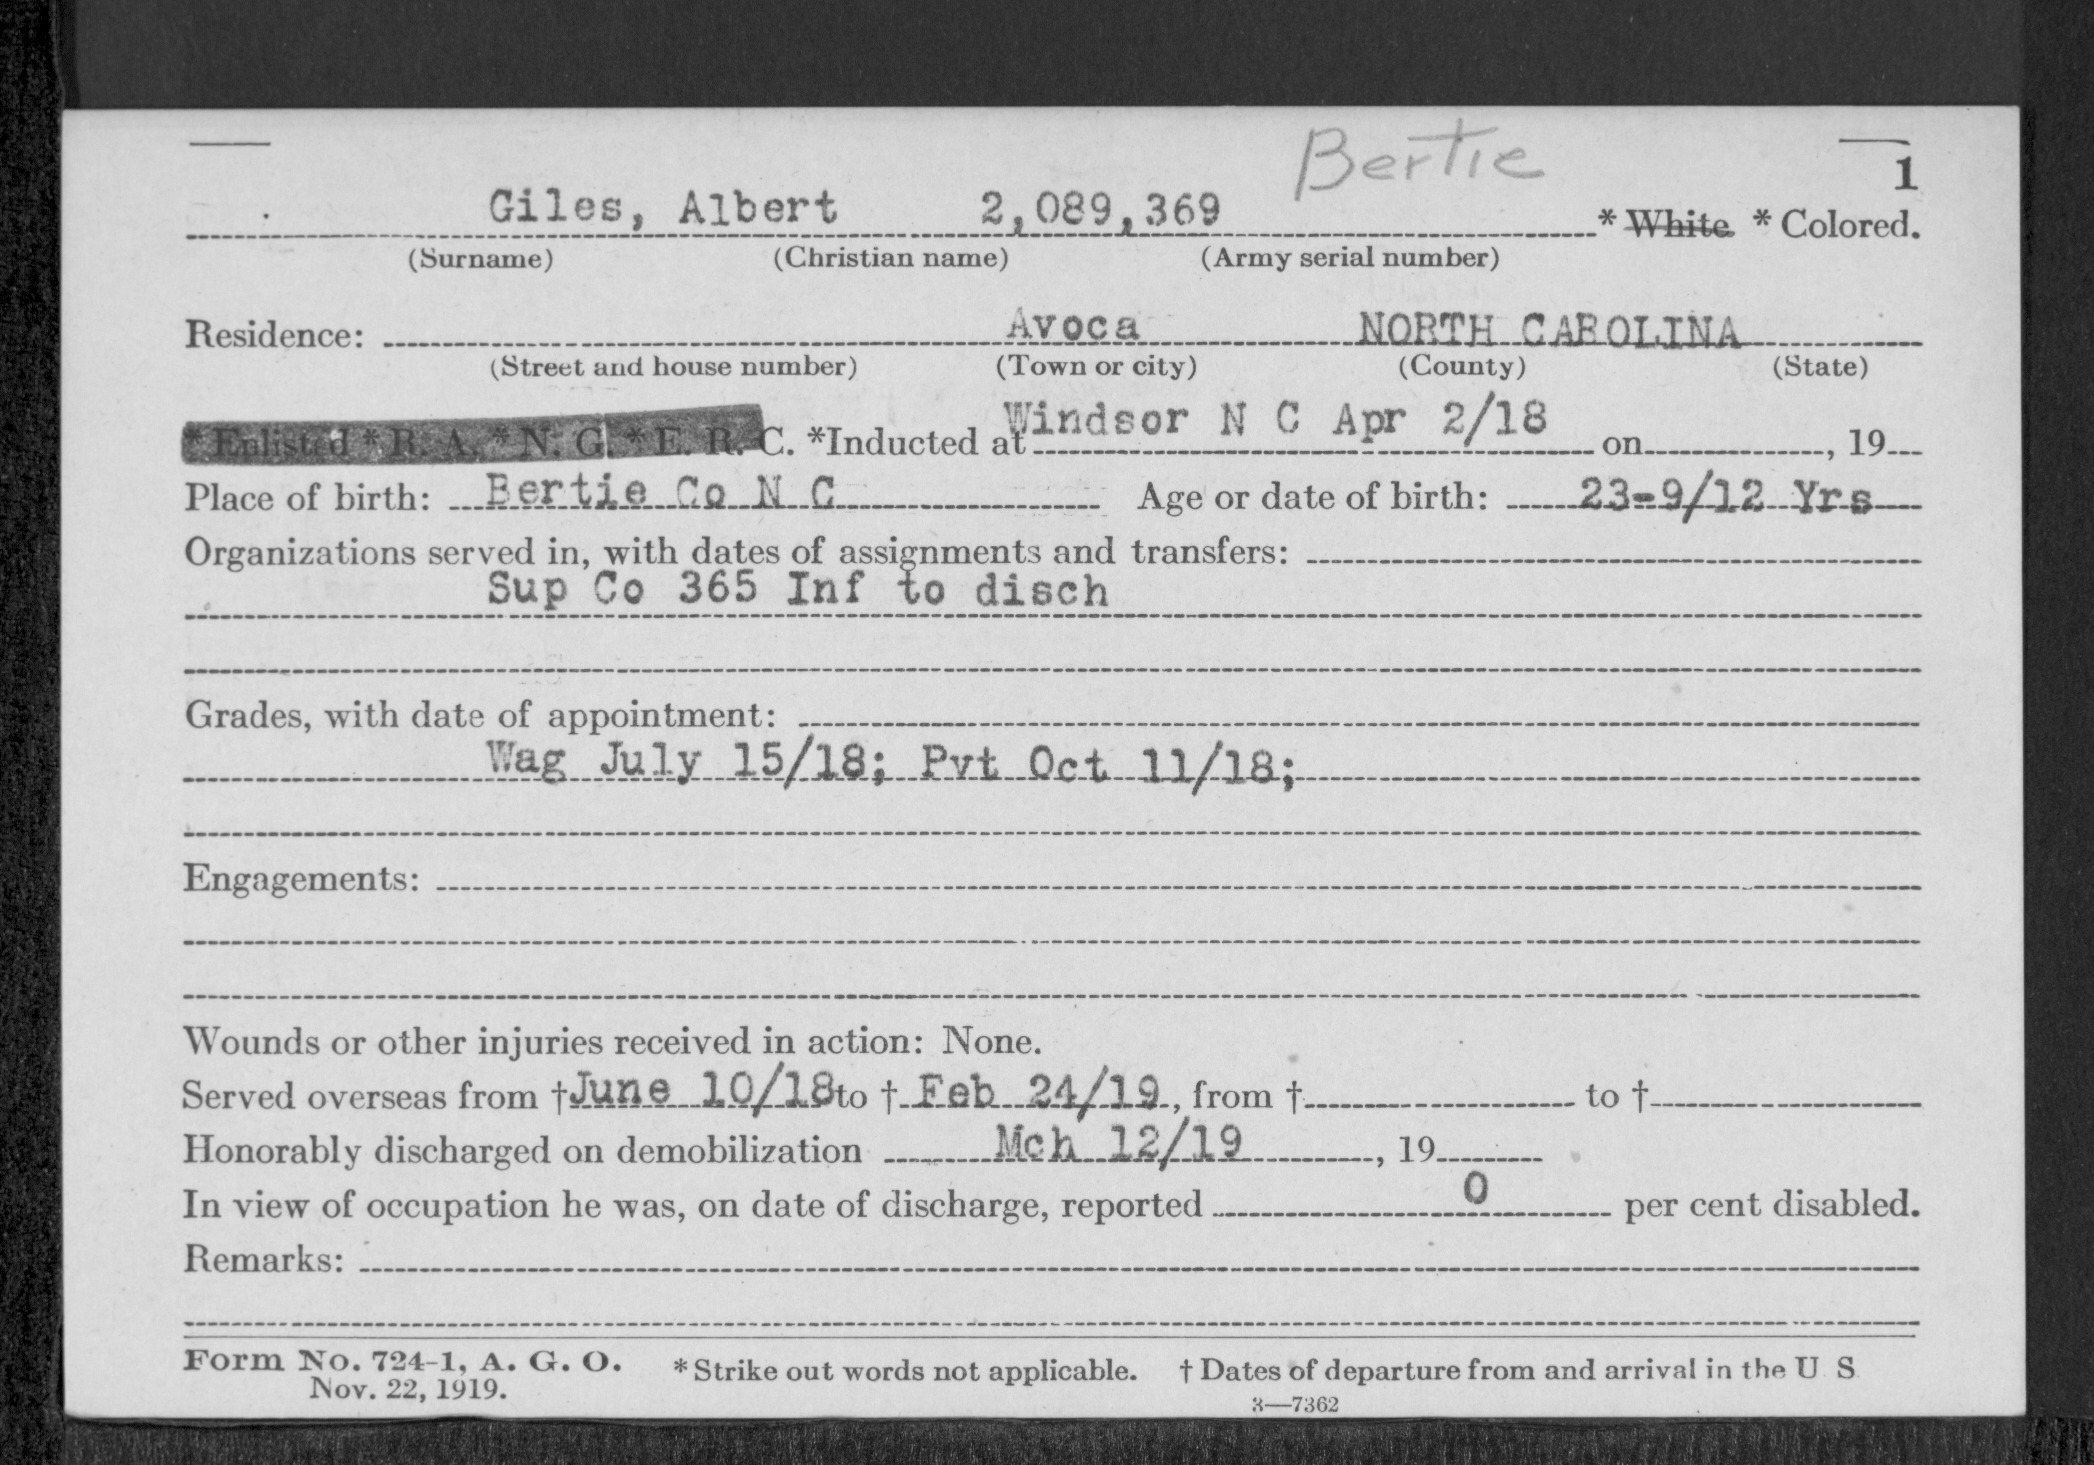 Bertie
1
Giles, Albert 2,089,369 * White * Colored.
(Surname) (Christian name) (Army serial number)
Residence: Avoca NORTH CAROLINA
(Street and house number) (Town or city) (County) (State)
* Enlisted * R. A. * N. G. * E. R. C. *Inducted at Windsor N C Apr 2/18 on , 19
Place of birth: Bertie Co N C Age or date of birth: 23-9/12 Yrs
Organizations served in, with dates of assignments and transfers:
Sup Co 365 Inf to disch
Grades, with date of appointment:
Wag July 15/18; Pvt Oct 11/18;
Engagements:
Wounds or other injuries received in action: None.
Served overseas from † June 10/18 to † Feb 24/19, from † to †
Honorably discharged on demobilization Mch 12/19, 19
In view of occupation he was, on date of discharge, reported 0 per cent disabled.
Remarks:
Form No. 724-1, A. G. O. * Strike out words not applicable. † Dates of departure from and arrival in the U S
Nov. 22, 1919.
3—7362